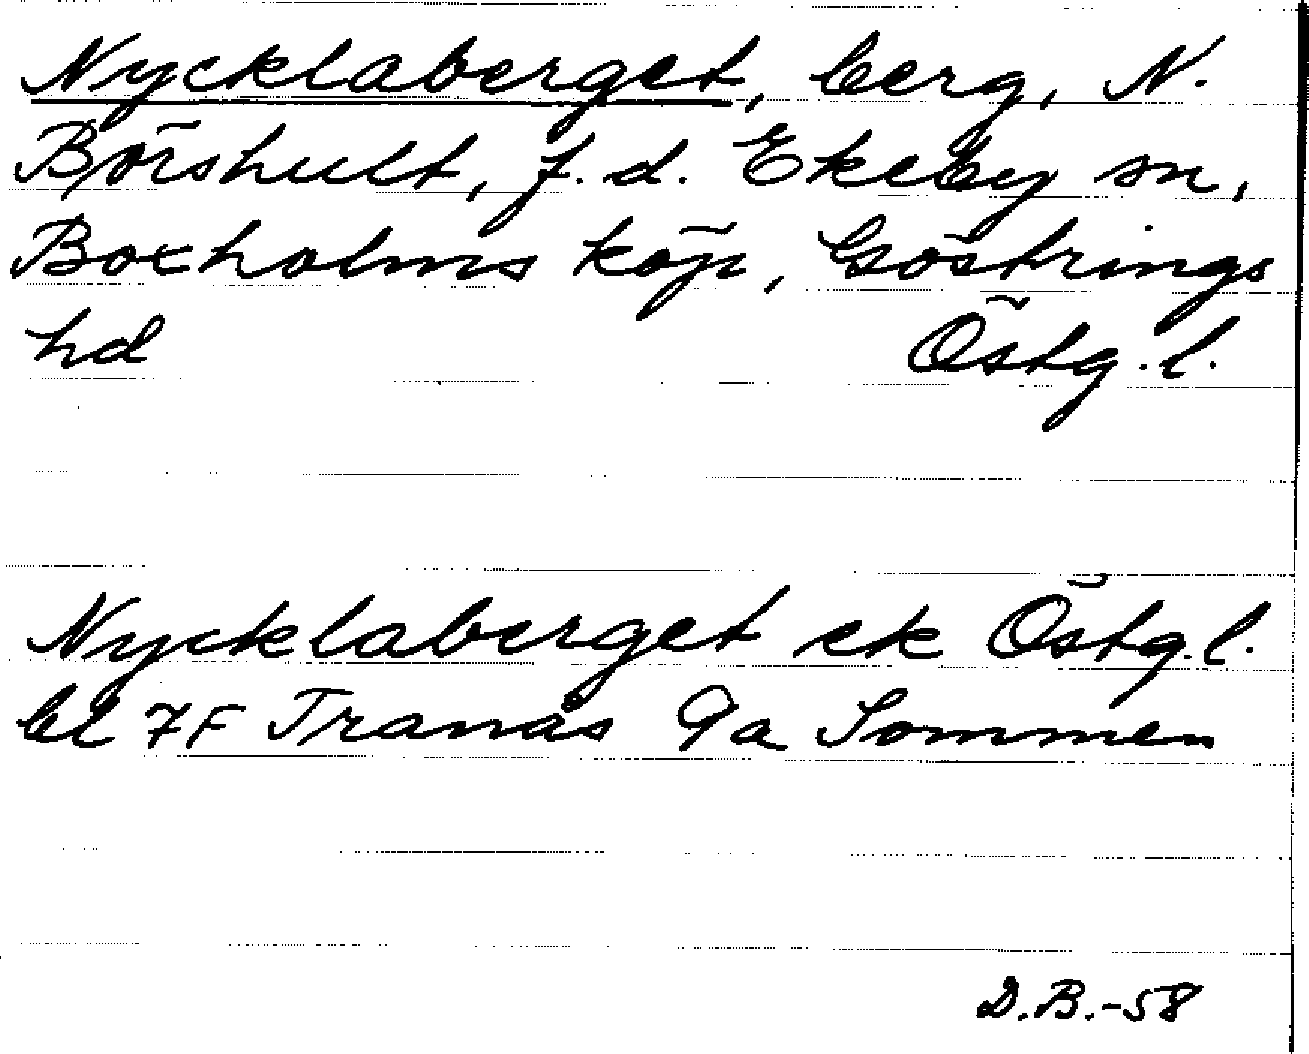 Nycklaberget, berg, N.
Börshult, f.d. Ekeby sn,
Boxholms köp, Göstrings
hd Östg.l.
Nycklaberget ek Östg.l.
bl 7F Tranås 9a Sommen
D.B.-58